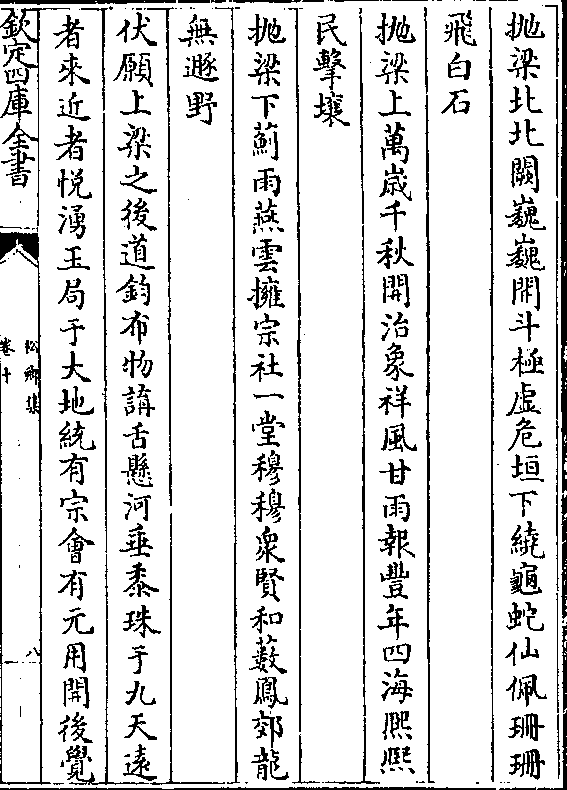 抛梁北北闕巍巍開斗極虛危垣下繞龜蛇仙佩珊珊
飛白石
抛梁上萬歳千秋開治象祥風甘雨報豐年四海熈熈
民擊壤
抛梁下薊雨燕雲擁宗社一堂穆穆衆賢和藪鳳郊龍
無遯野
伏願上梁之後道鈞布物講舌懸河垂黍珠于九天逺
者來近者悦湧玉局于大地統有宗會有元用開後覺
欽定四庫全書
松鄉集
卷十
八